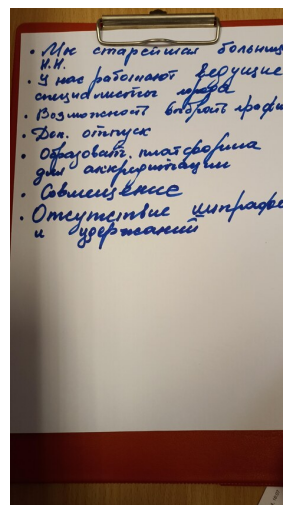 • Мы старейшая больниц
Н.Н.
• У нас работают ведущие
специалисты города
• Возможность выбрать профи
• Доп. отпуск
• Образоват. платформа
для аккредитации
• Совмещение
• Отсутствие штрафов
и удержаний